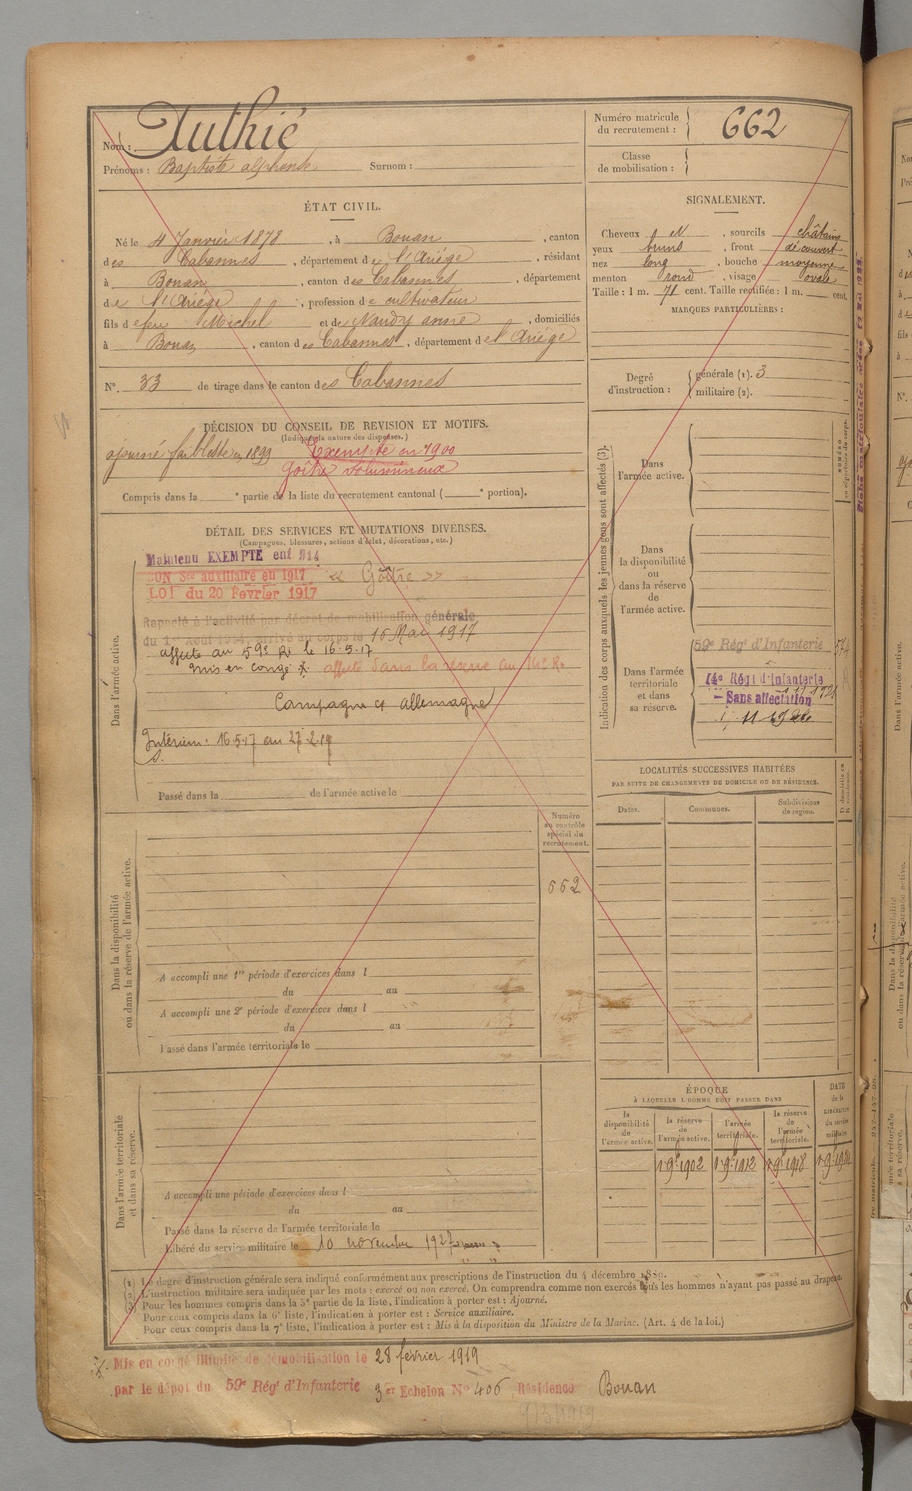 Nom : Authié
Prénoms : Baptiste alphonse Surnom :
Numéro matricule du recrutement : 662
Classe de mobilisation :
ÉTAT CIVIL.
Né le 4 Janvier 1878, à Bouan, canton
des Cabannes, département de l'Ariége, résidant
à Bouan, canton des Cabannes, département
de l'Ariége, profession de cultivateur
fils de feu Michel et de Naudy anne, domiciliés
à Bouan, canton des Cabannes, département de l'Ariége
N°. 33 de tirage dans le canton des Cabannes
SIGNALEMENT.
Cheveux N, sourcils châtains
yeux bruns, front découvert
nez long, bouche moyenne
menton rond, visage ovale
Taille : 1 m. 71 cent. Taille rectifiée : 1 m. cent.
MARQUES PARTICULIÈRES :
Degré d'instruction : générale (1). 3
militaire (2).
DÉCISION DU CONSEIL DE REVISION ET MOTIFS.
(Indiquer la nature des dispenses.)
ajourné faiblesse en 1899 Exempté en 1900
Goître volumineux
Compris dans la e partie de la liste du recrutement cantonal ( e portion).
DÉTAIL DES SERVICES ET MUTATIONS DIVERSES.
(Campagnes, blessures, actions d'éclat, décorations, etc.)
Dans l'armée active.
Maintenu EXEMPTÉ en 1914
BON Sce auxiliaire en 1917 « Goître »
LOI du 20 Février 1917
Rappelé à l'activité par décret de mobilisation générale
du 1er Août 1914, arrivé au corps le 16 Mai 1917
affecté au 59e Ri le 16.5.17
mis en congé affecté dans la réserve au 14e R.
Campagne ct allemagne
Intérieur : 16.5.17 au 27.2.19
Passé dans la de l'armée active le
Numéro au contrôle spécial du recrutement.
662
Dans la disponibilité ou dans la réserve de l'armée active.
A accompli une 1re période d'exercices dans l
du au
A accompli une 2e période d'exercices dans l
du au
Passé dans l'armée territoriale le
Dans l'armée territoriale et dans sa réserve.
A accompli une période d'exercices dans l
du au
Passé dans la réserve de l'armée territoriale le
Libéré du service militaire le 10 novembre 1927
Indication des corps auxquels les jeunes gens sont affectés (3).
Dans l'armée active.
Dans la disponibilité ou dans la réserve de l'armée active.
Dans l'armée territoriale et dans sa réserve.
59e Régt d'Infanterie
14e Régt d'Infanterie
Sans affectation
LOCALITÉS SUCCESSIVES HABITÉES
PAR SUITE DE CHANGEMENTS DE DOMICILE OU DE RÉSIDENCE.
Dates. Communes. Subdivisions de région.
ÉPOQUE
À LAQUELLE L'HOMME DOIT PASSER DANS
la disponibilité de l'armée active. la réserve de l'armée active. l'armée territoriale. la réserve de l'armée territoriale.
DATE de la LIBÉRATION du service militaire
1 9bre 1902 1 9bre 1912 1 9bre 1918
(1) Le degré d'instruction générale sera indiqué conformément aux prescriptions de l'instruction du 4 décembre 1889.
(2) L'instruction militaire sera indiquée par les mots : exercé ou non exercé. On comprendra comme non exercés tous les hommes n'ayant pas passé au drapeau.
(3) Pour les hommes compris dans la 5e partie de la liste, l'indication à porter est : Ajourné.
Pour ceux compris dans la 6e liste, l'indication à porter est : Service auxiliaire.
Pour ceux compris dans la 7e liste, l'indication à porter est : Mis à la disposition du Ministre de la Marine. (Art. 4 de la loi.)
Mis en congé illimité de démobilisation le 28 février 1919
par le dépôt du 59e Régt d'Infanterie 3er Echelon N° 406, Résidence Bouan